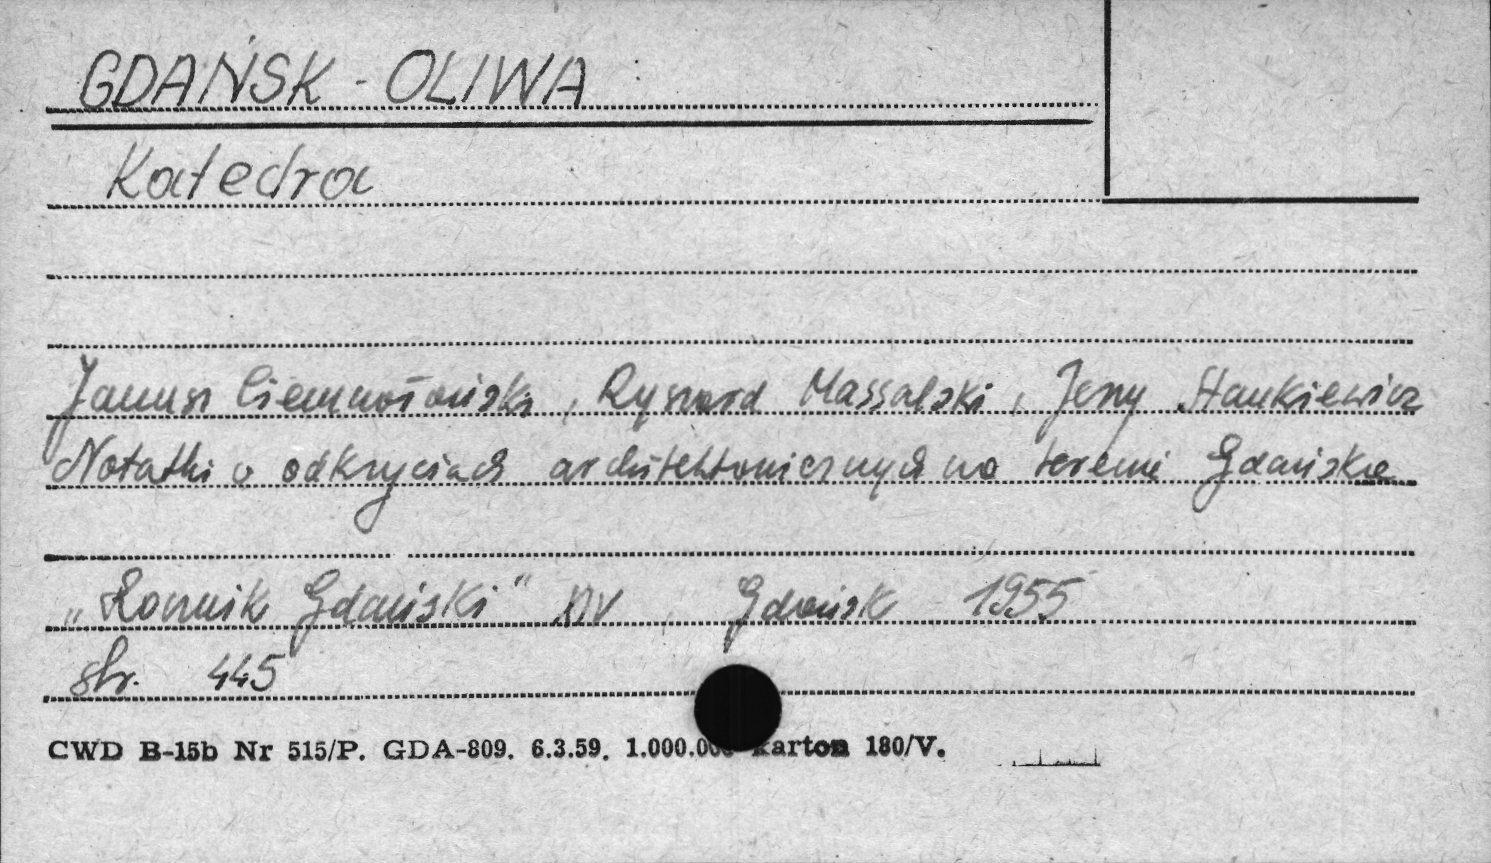 GDAŃSK - OLIWA
Katedra
Janusz Ciemnołoński, Ryszard Massalski, Jerzy Stankiewicz
Notatki o odkryciach architektonicznych na terenie Gdańska
„Rocznik Gdański" XIV, Gdańsk 1955
str. 445
CWD B-15b Nr 515/P. GDA-809. 6.3.59. 1.000.000 karton 180/V.